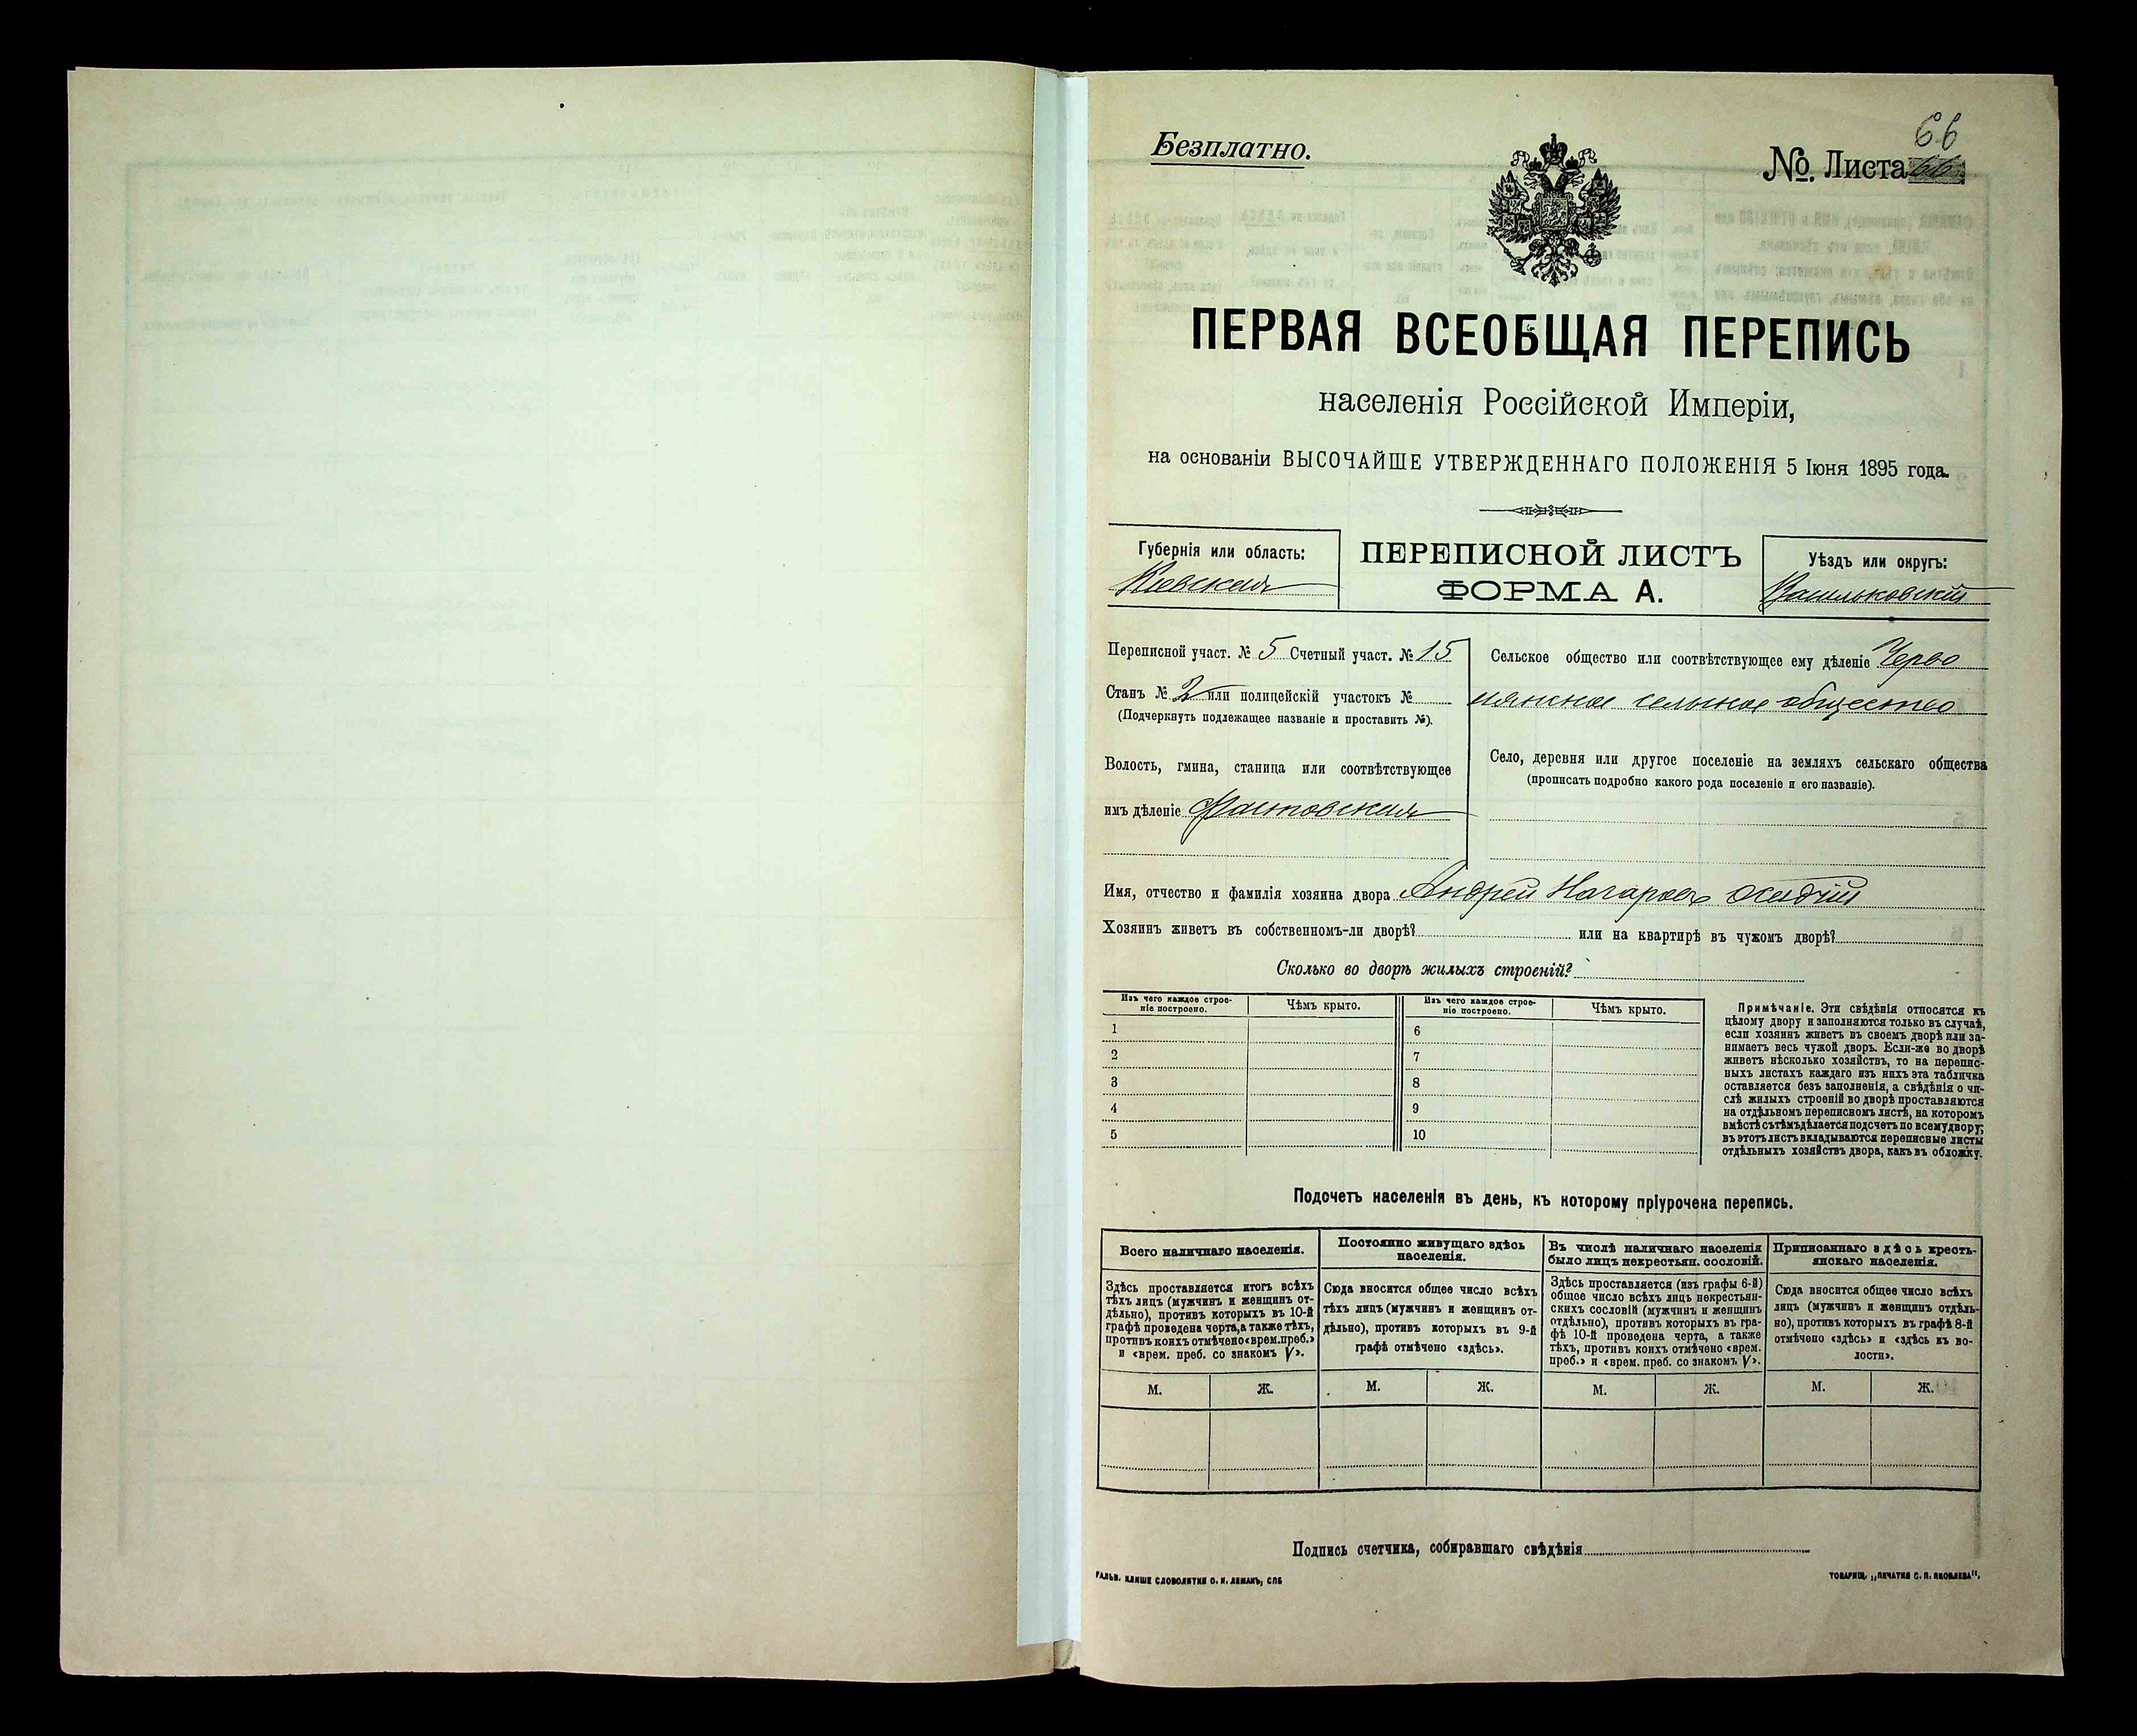 66
Безплатно.
№. Листа 66
ПЕРВАЯ ВСЕОБЩАЯ ПЕРЕПИСЬ
населенія Россійской Имперіи,
на основаніи ВЫСОЧАЙШЕ УТВЕРЖДЕННАГО ПОЛОЖЕНІЯ 5 Іюня 1895 года.
Губернія или область:
Кіевская
ПЕРЕПИСНОЙ ЛИСТЪ
ФОРМА А.
Уѣздъ или округъ:
Васильковскій
Переписной участ. № 5 Счетный участ. № 15
Станъ № 2 или полицейскій участокъ №
(Подчеркнуть подлежащее названіе и проставить №).
Волость, гмина, станица или соотвѣтствующее
имъ дѣленіе Фастовская
Сельское общество или соотвѣтствующее ему дѣленіе Черво
нянское сельское общество
Село, деревня или другое поселеніе на земляхъ сельскаго общества
(прописать подробно какого рода поселеніе и его названіе).
Имя, отчество и фамилія хозяина двора Андрей Осадчій
Хозяинъ живетъ въ собственномъ-ли дворѣ? или на квартирѣ въ чужомъ дворѣ?
Сколько во дворѣ жилыхъ строеній?
Изъ чего каждое строе-
ніе построено.
Чѣмъ крыто.
Изъ чего каждое строе-
ніе построено.
Чѣмъ крыто.
1 6
2 7
3 8
4 9
5 10
Примѣчаніе. Эти свѣдѣнія относятся къ
цѣлому двору и заполняются только въ случаѣ,
если хозяинъ живетъ въ своемъ дворѣ или за-
нимаетъ весь чужой дворъ. Если-же во дворѣ
живетъ нѣсколько хозяйствъ, то на перепис-
ныхъ листахъ каждаго изъ нихъ эта табличка
оставляется безъ заполненія, а свѣдѣнія о чи-
слѣ жилыхъ строеній во дворѣ проставляются
на отдѣльномъ переписномъ листѣ, на которомъ
вмѣстѣ съ тѣмъ дѣлается подсчетъ по всему двору;
въ этотъ листъ вкладываются переписные листы
отдѣльныхъ хозяйствъ двора, какъ въ обложку.
Подсчетъ населенія въ день, къ которому пріурочена перепись.
Всего наличнаго населенія.
Здѣсь проставляется итогъ всѣхъ
тѣхъ лицъ (мужчинъ и женщинъ от-
дѣльно), противъ которыхъ въ 10-й
графѣ проведена черта, а также тѣхъ,
противъ коихъ отмѣчено «врем. преб.»
и «врем. преб. со знакомъ V».
Постоянно живущаго здѣсь
населенія.
Сюда вносится общее число всѣхъ
тѣхъ лицъ (мужчинъ и женщинъ от-
дѣльно), противъ которыхъ въ 9-й
графѣ отмѣчено «здѣсь».
Въ числѣ наличнаго населенія
было лицъ некрестьян. сословій.
Здѣсь проставляется (изъ графы 6-й)
общее число всѣхъ лицъ некрестьян-
скихъ сословій (мужчинъ и женщинъ
отдѣльно), противъ которыхъ въ гра-
фѣ 10-й проведена черта, а также
тѣхъ, противъ коихъ отмѣчено «врем.
преб.» и «врем. преб. со знакомъ V».
Приписаннаго здѣсь кресть-
янскаго населенія.
Сюда вносится общее число всѣхъ
лицъ (мужчинъ и женщинъ отдѣль-
но), противъ которыхъ въ графѣ 8-й
отмѣчено «здѣсь» и «здѣсь къ во-
лости».
М. Ж. М. Ж. М. Ж. М. Ж.
Подпись счетчика, собиравшаго свѣдѣнія
ГАЛЬВ. КЛИШЕ СЛОВОЛИТНИ О. И. ЛЕМАНЪ, СПБ
ТОВАРИЩ. „ПЕЧАТНЯ С. П. ЯКОВЛЕВА".